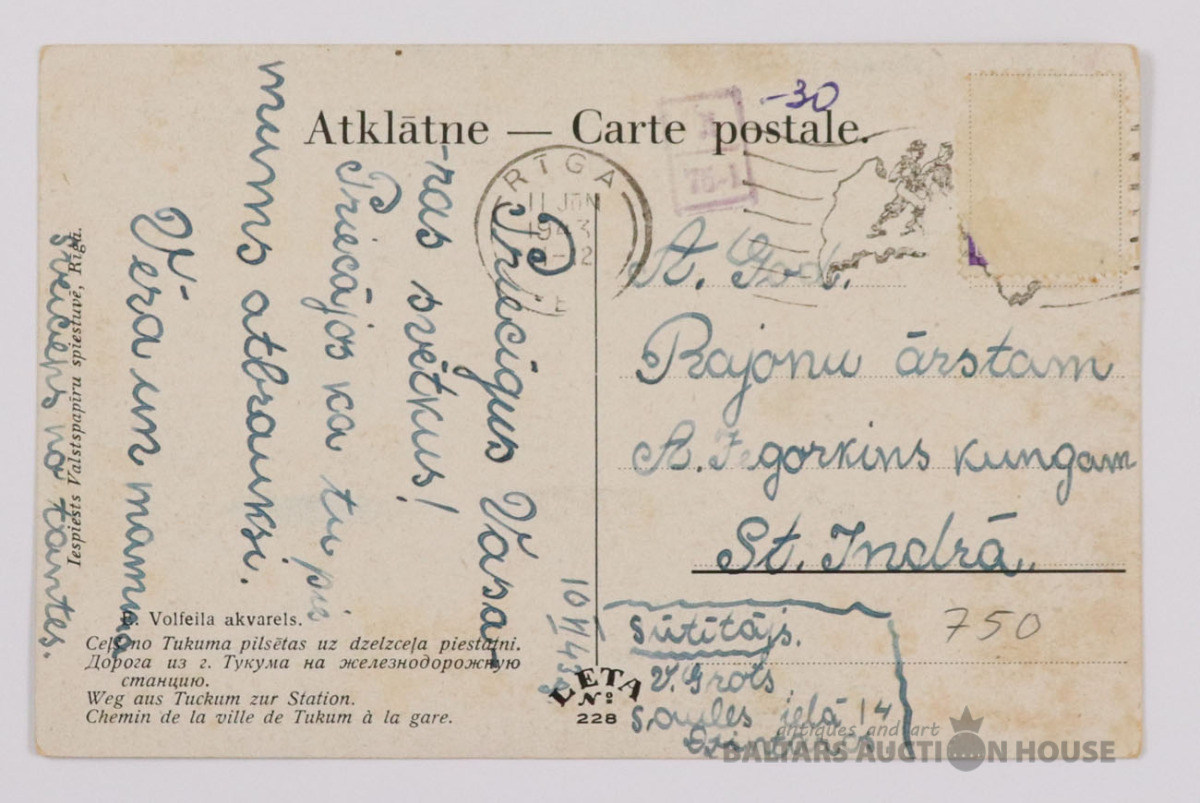 Atklātne — Carte postale.
-30
75-1
RĪGA
11 JŪN
1943
-12
A. God.
Rajonu ārstam
A. Jegorkins kungam
St. Indrā.
750
Sūtītājs.
V. Grots
Saules ielā 14
10 VI 43
Priecīgus Vasa
-ras svētkus!
Priecājos ka tu pie
mums atbrauksi.
Vēra un mamma
Sveiciens no tantes.
Iespiests Valstspapīru spiestuvē, Rīgā.
E. Volfeila akvarels.
Ceļš no Tukuma pilsētas uz dzelzceļa piestātni.
Дорога из г. Тукума на железнодорожную
станцию.
Weg aus Tuckum zur Station.
Chemin de la ville de Tukum à la gare.
LETA
Nº
228
antiques and art
BALTARS AUCTION HOUSE